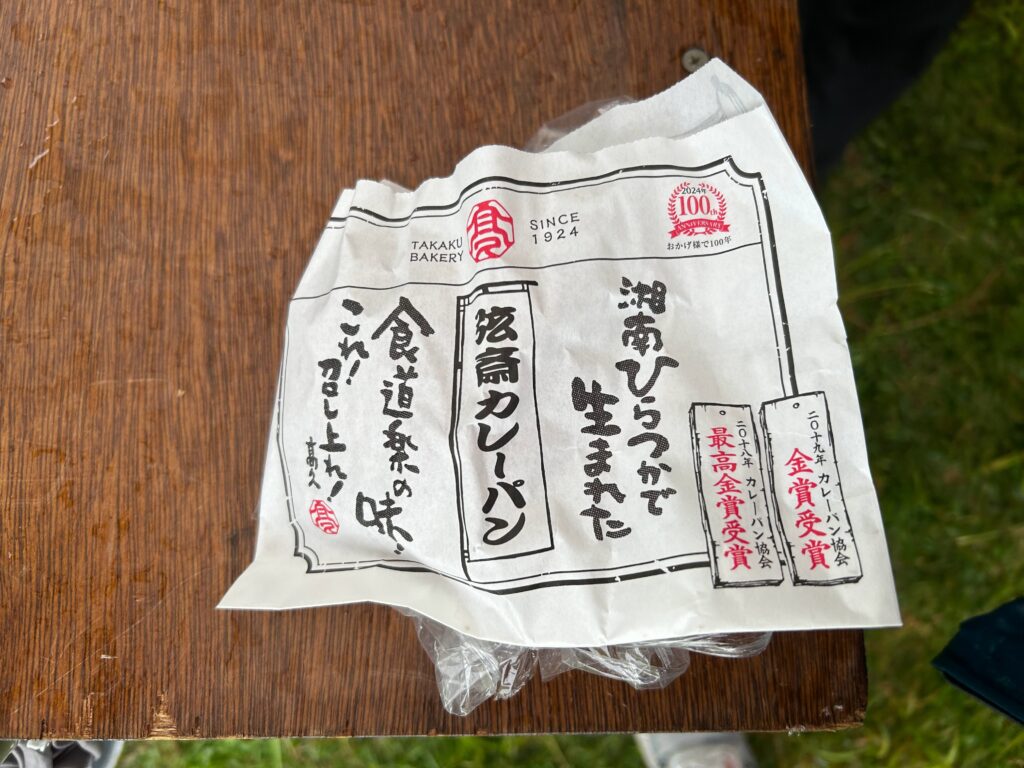 TAKAKU
BAKERY
高久
SINCE
1924
2024年
100th
ANNIVERSARY
おかげ様で100年
湘南ひらつかで
生まれた
弦斎カレーパン
食道楽の味、
これ!
召し上れ!
高久
二〇十九年 カレーパン協会
金賞受賞
二〇十八年 カレーパン協会
最高金賞受賞